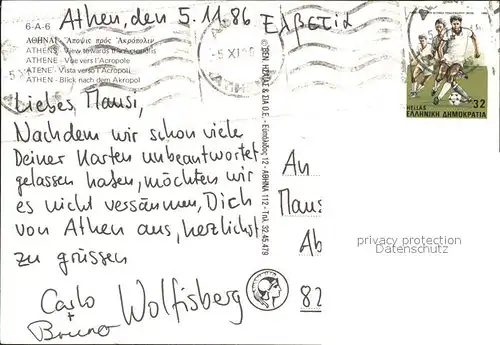 Athen, den 5.11.86
Ελβετία
6-A-6
ΑΘΗΝΑΙ - Ἄποψις πρὸς Ἀκρόπολιν
ATHENS - View towards the Acropolis
ATHENE - Vue vers l'Acropole
ATENE - Vista verso l'Acropoli
ATHEN - Blick nach dem Akropol
Liebes Mausi,
Nachdem wir schon viele
Deiner Karten unbeantwortet
gelassen haben, möchten wir
es nicht versäumen, Dich
von Athen aus, herzlichst
zu grüssen
Carlo Wolfisberg
+
Bruno
& ΣΙΑ Ο.Ε. - Εὐπόλιδος 12 - ΑΘΗΝΑ 112 - Τηλ. 32.45.479
HELLAS 32
ΕΛΛΗΝΙΚΗ ΔΗΜΟΚΡΑΤΙΑ
An
Maus
Ab
82
privacy protection
Datenschutz